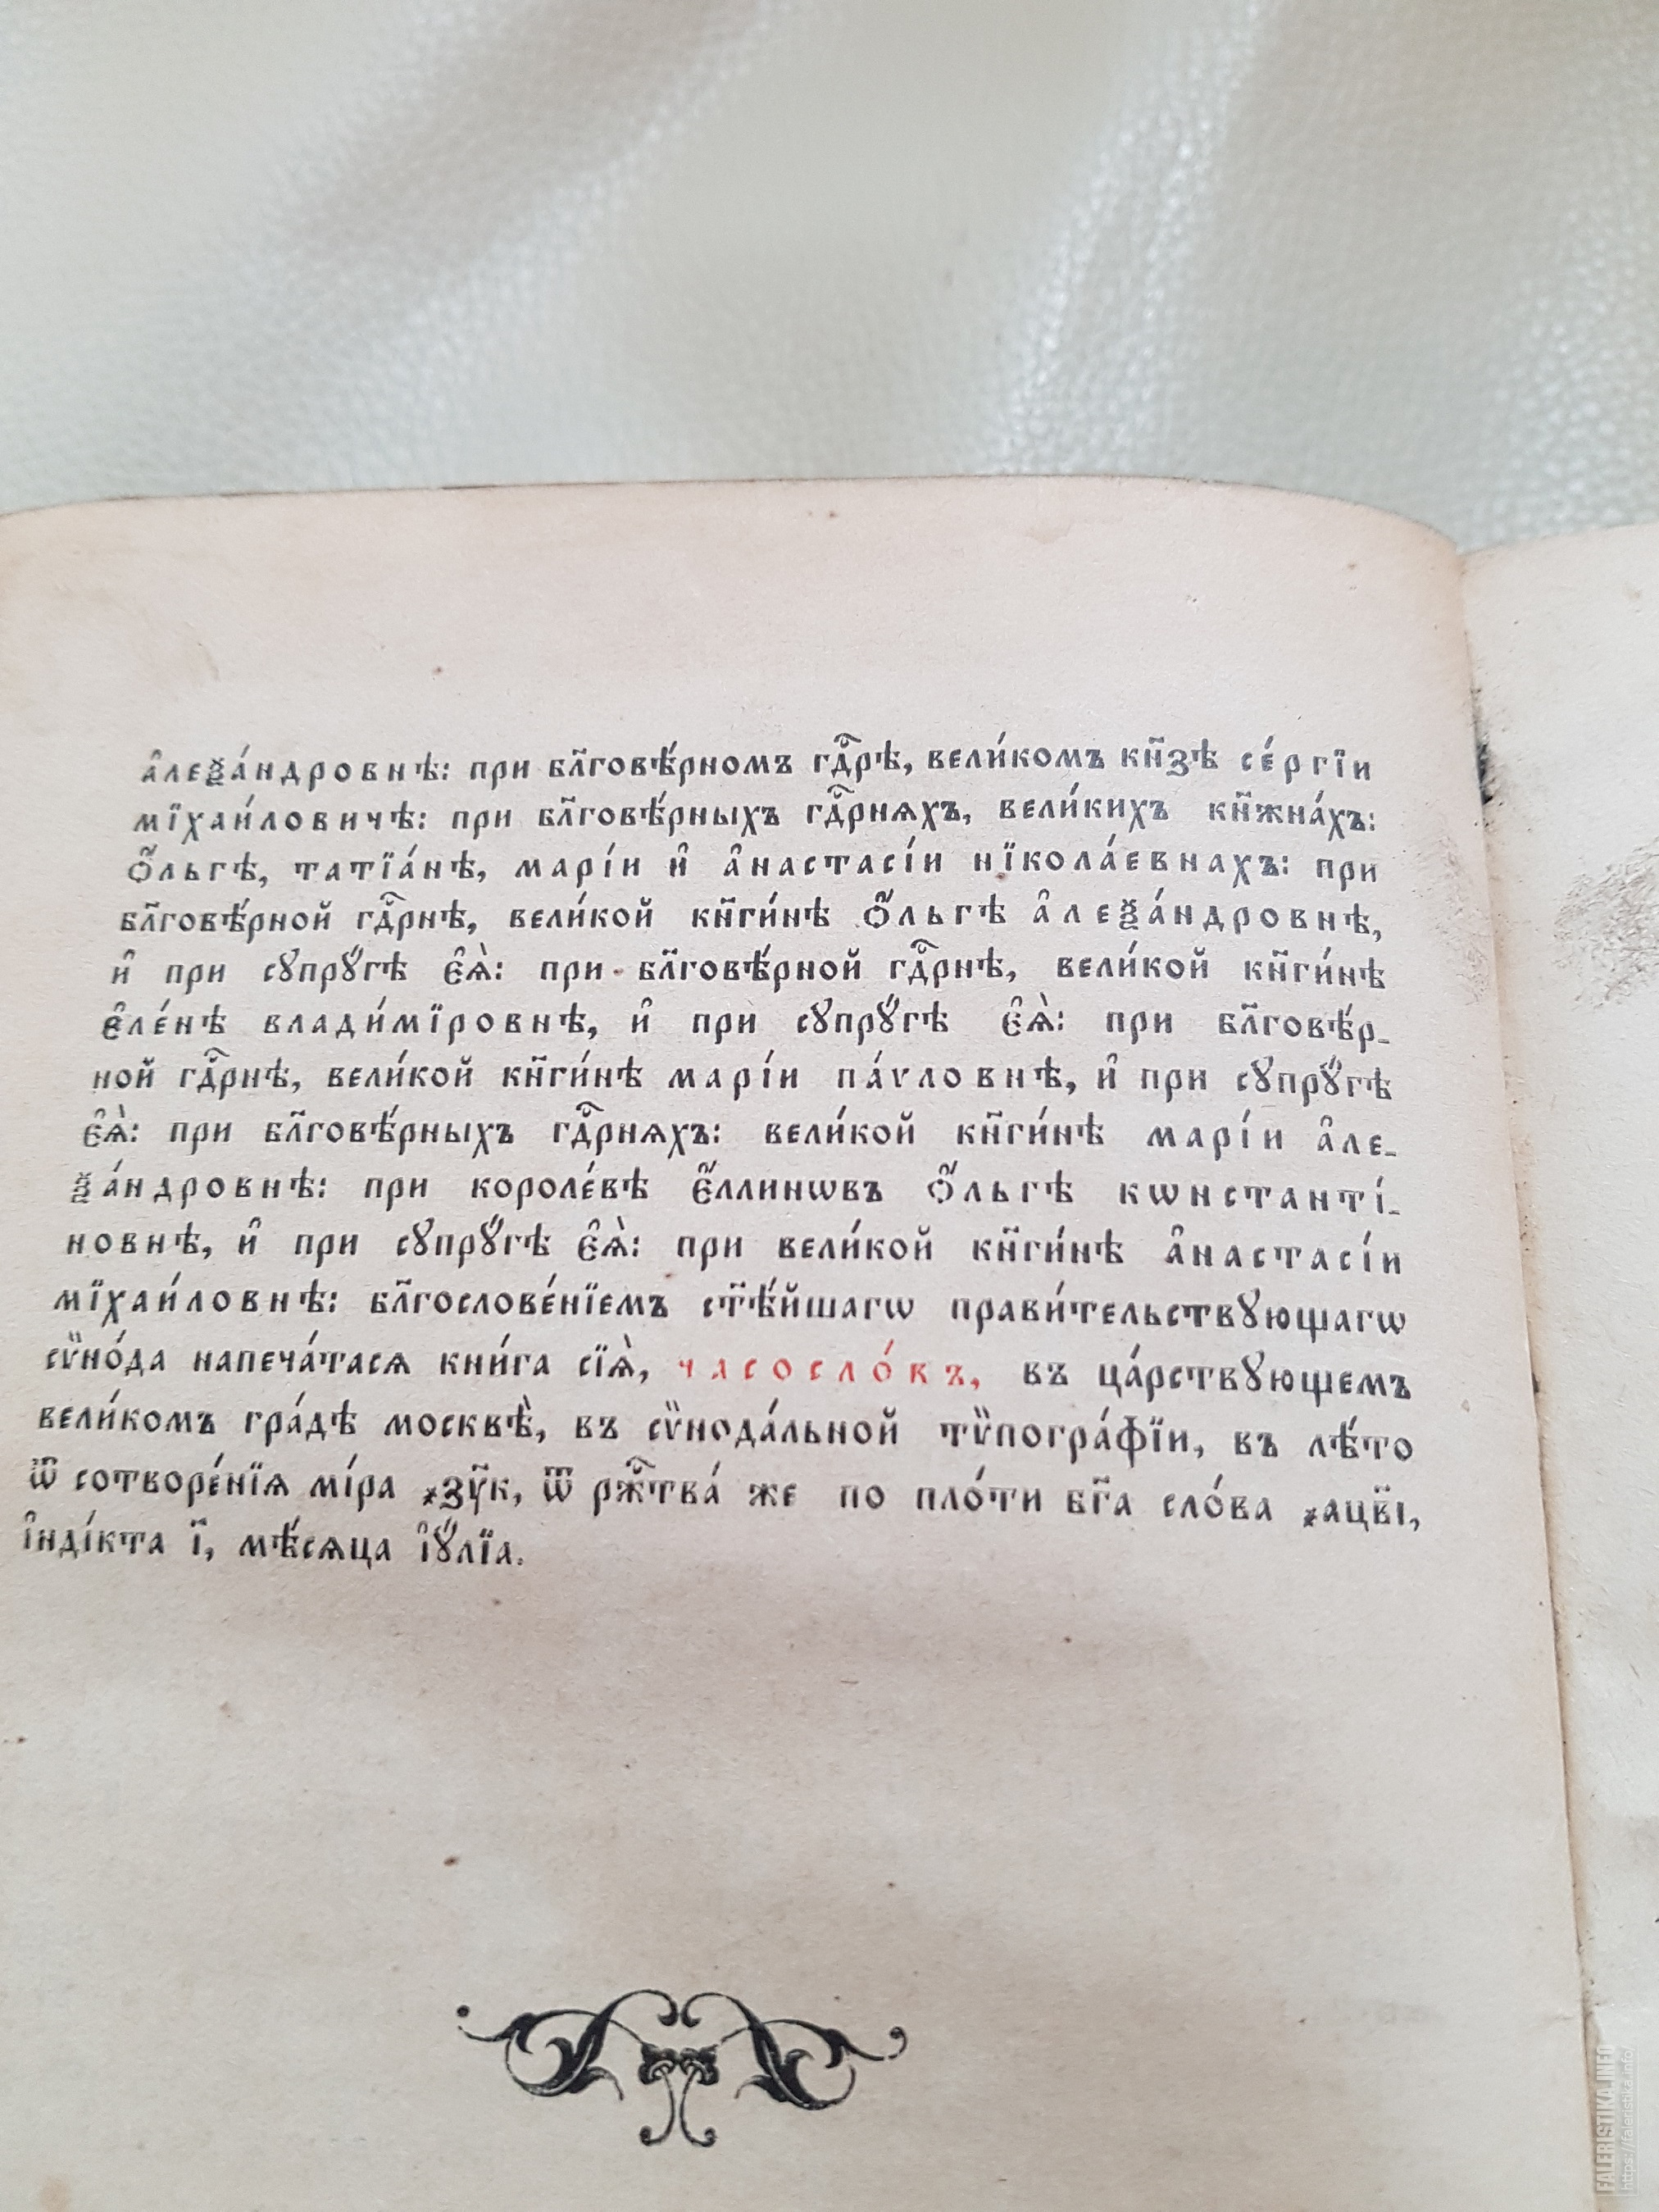 а҆леѯа́ндровнѣ: при бл҃говѣ́рномъ гдⷭ҇рѣ, вели́комъ кн҃зѣ се́ргїи
мїхаи́ловичѣ: при бл҃говѣ́рныхъ гдⷭ҇рняхъ, вели́кихъ кн҃жна́хъ:
Ѻ҆́льгѣ, татїа́нѣ, марі́и и҆ а҆настасі́и нїкола́евнахъ: при
бл҃говѣ́рной гдⷭ҇рнѣ, вели́кой кн҃ги́нѣ Ѻ҆́льгѣ а҆леѯа́ндровнѣ,
и҆ при сꙋпрꙋ́гѣ є҆ѧ̀: при бл҃говѣ́рной гдⷭ҇рнѣ, вели́кой кн҃ги́нѣ
є҆ле́нѣ влади́мїровнѣ, и҆ при сꙋпрꙋ́гѣ є҆ѧ̀: при бл҃говѣ́р-
ной гдⷭ҇рнѣ, вели́кой кн҃ги́нѣ марі́и па́ѵловнѣ, и҆ при сꙋпрꙋ́гѣ
є҆ѧ̀: при бл҃говѣ́рныхъ гдⷭ҇рняхъ: вели́кой кн҃ги́нѣ марі́и а҆ле-
ѯа́ндровнѣ: при короле́вѣ є҆́ллинѡвъ Ѻ҆́льгѣ кѡнстанті́-
новнѣ, и҆ при сꙋпрꙋ́гѣ є҆ѧ̀: при вели́кой кн҃ги́нѣ а҆настасі́и
мїхаи́ловнѣ: бл҃гослове́нїемъ ст҃ѣ́йшагѡ прави́тельствꙋющагѡ
сѷно́да напеча́тася кни́га сїѧ̀, часосло́въ, въ ца́рствꙋющемъ
вели́комъ гра́дѣ москвѣ̀, въ сѷнода́льной тѷпогра́фїи, въ лѣ́то
ѿ сотворе́нїя мі́ра ҂зу҃к, ѿ ржⷭ҇тва́ же по пло́ти бг҃а сло́ва ҂ацв҃і,
і҆нді́кта і҃, мѣ́сяца і҆ꙋ́лїа.
FALERISTIKA.INFO
https://faleristika.info/